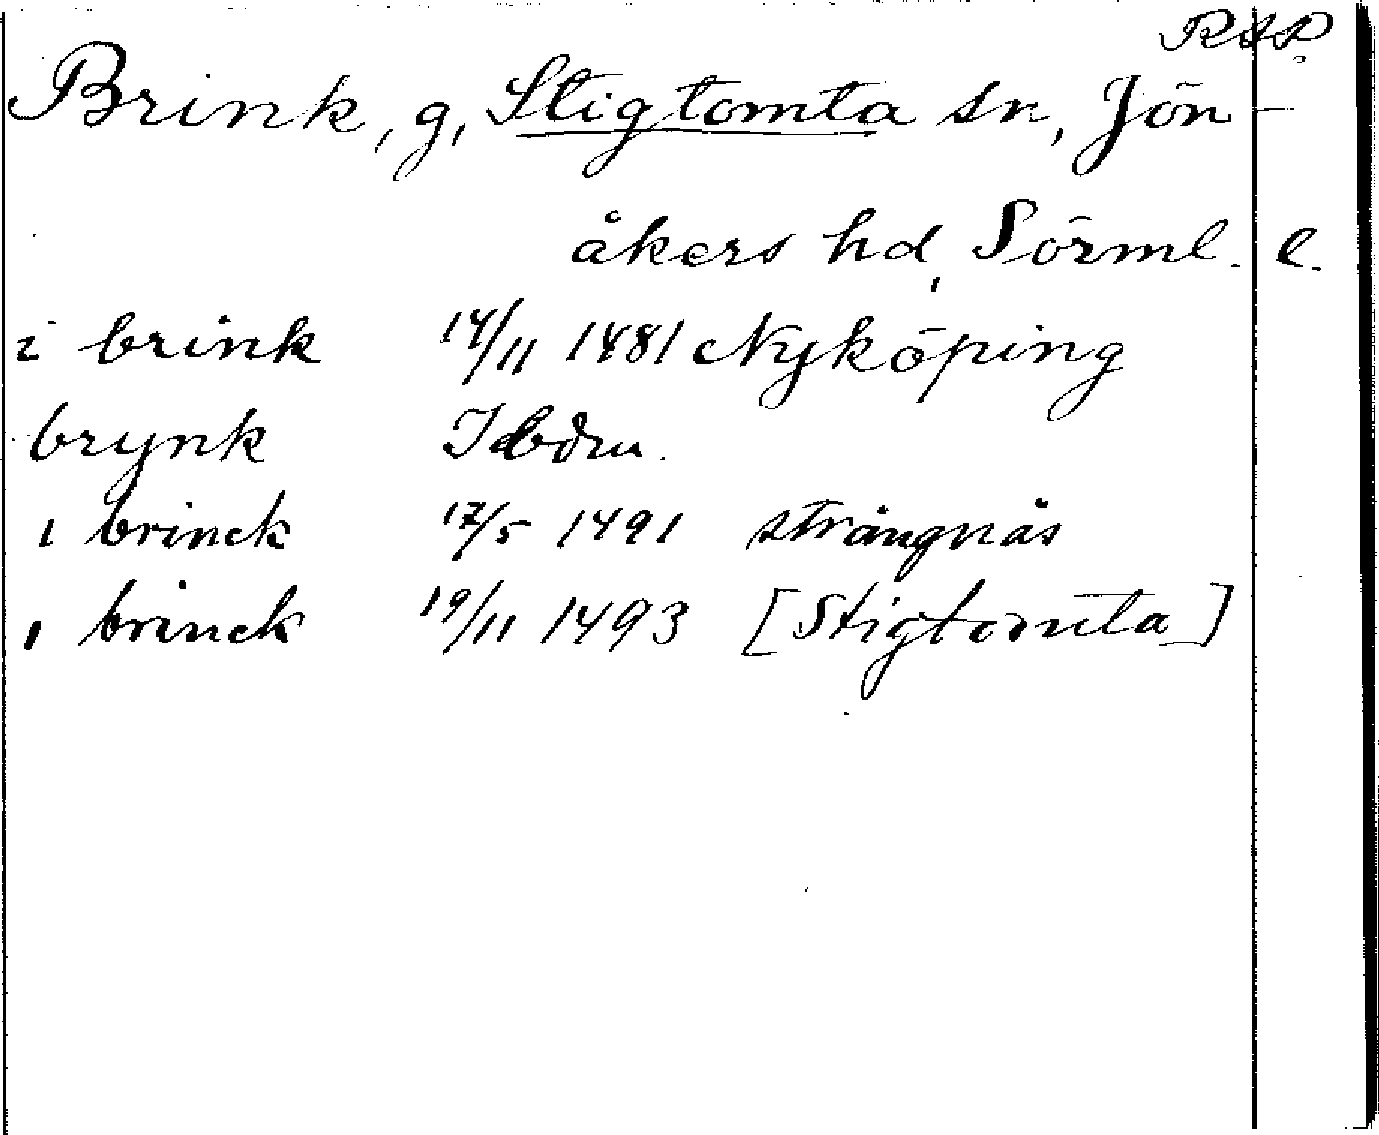 RAP
Brink, g, Stigtomta sn, Jön-
åkers hd, Sörml. l.
i brink 14/11 1481 Nyköping
brynk Ibdm.
i brinck 17/5 1491 strängnäs
i brinck 19/11 1493 [Stigtomta]